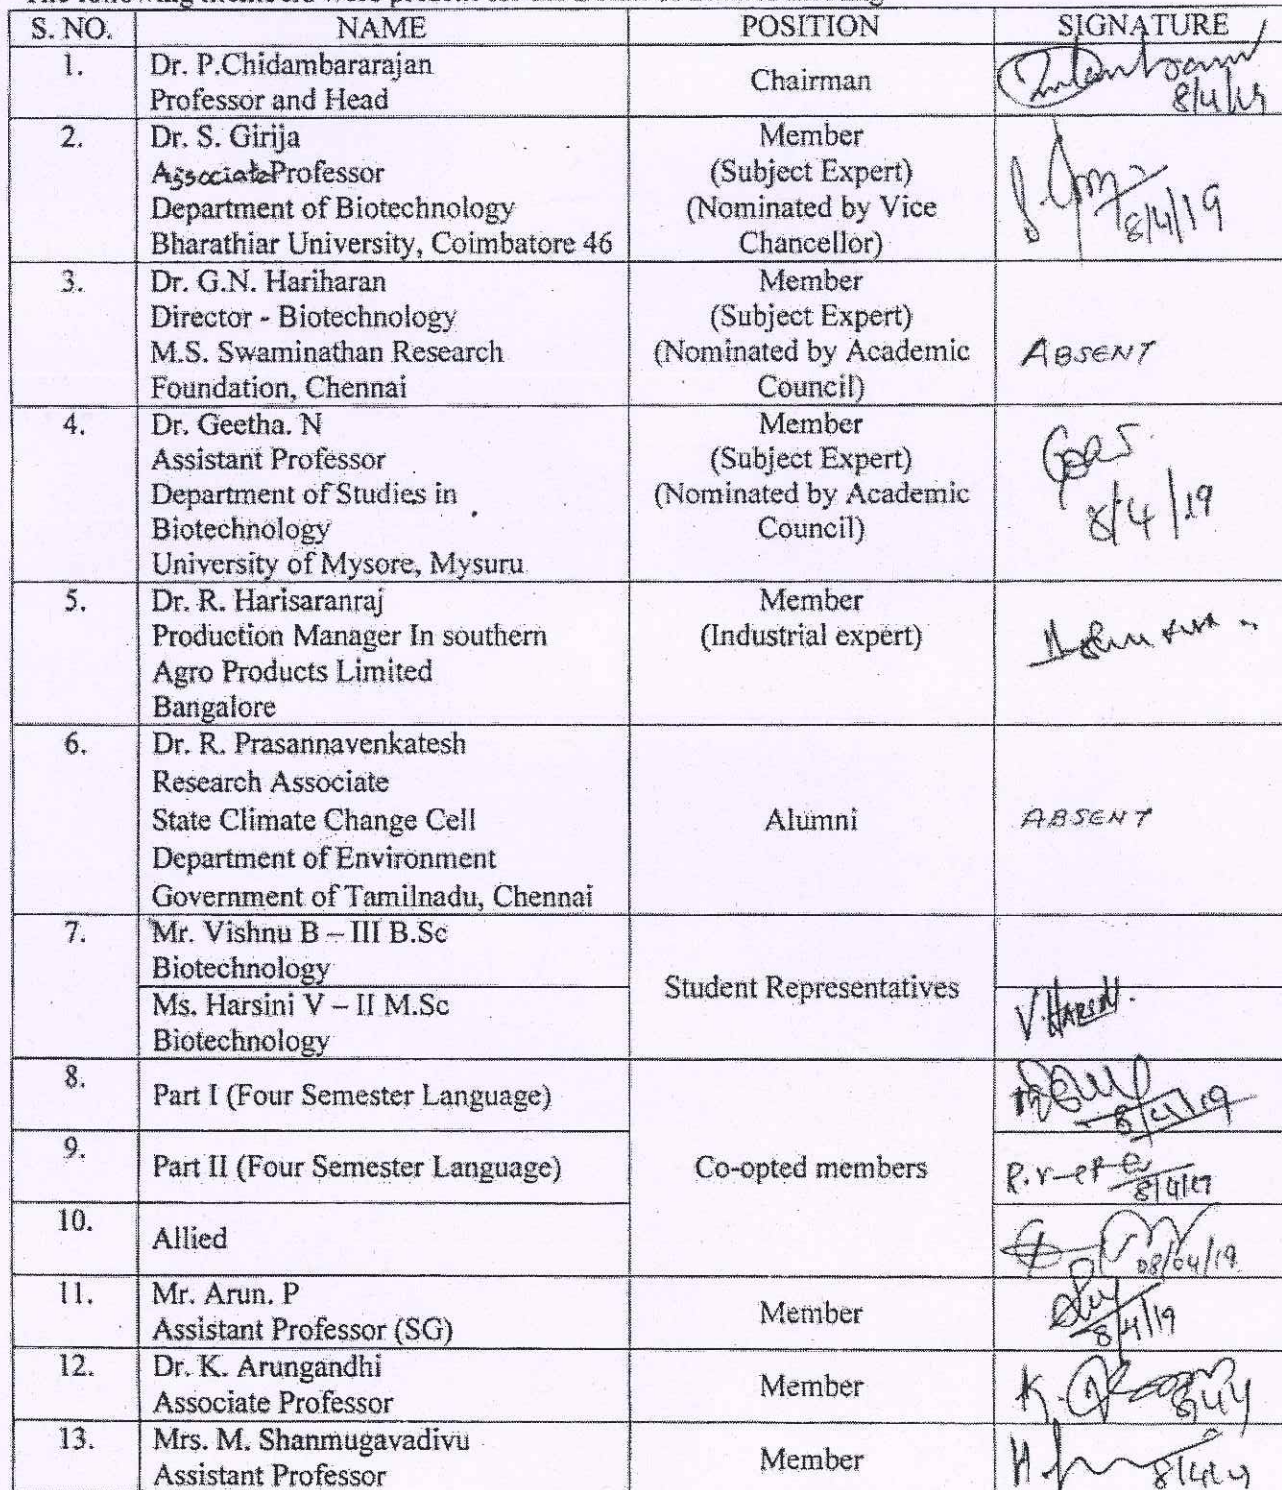 S. NO. NAME POSITION SIGNATURE
1. Dr. P.Chidambararajan
Professor and Head
Chairman
8/4/19
2. Dr. S. Girija
Associate Professor
Department of Biotechnology
Bharathiar University, Coimbatore 46
Member
(Subject Expert)
(Nominated by Vice
Chancellor)
8/4/19
3. Dr. G.N. Hariharan
Director - Biotechnology
M.S. Swaminathan Research
Foundation, Chennai
Member
(Subject Expert)
(Nominated by Academic
Council)
ABSENT
4. Dr. Geetha. N
Assistant Professor
Department of Studies in
Biotechnology
University of Mysore, Mysuru
Member
(Subject Expert)
(Nominated by Academic
Council)
8/4/19
5. Dr. R. Harisaranraj
Production Manager In southern
Agro Products Limited
Bangalore
Member
(Industrial expert)
6. Dr. R. Prasannavenkatesh
Research Associate
State Climate Change Cell
Department of Environment
Government of Tamilnadu, Chennai
Alumni
ABSENT
7. Mr. Vishnu B – III B.Sc
Biotechnology
Ms. Harsini V – II M.Sc
Biotechnology
Student Representatives
V. HARSINI.
8. Part I (Four Semester Language)
8/4/19
9. Part II (Four Semester Language)
Co-opted members
8/4/19
10. Allied
08/04/19
11. Mr. Arun. P
Assistant Professor (SG)
Member
8/4/19
12. Dr. K. Arungandhi
Associate Professor
Member
13. Mrs. M. Shanmugavadivu
Assistant Professor
Member
8/4/19